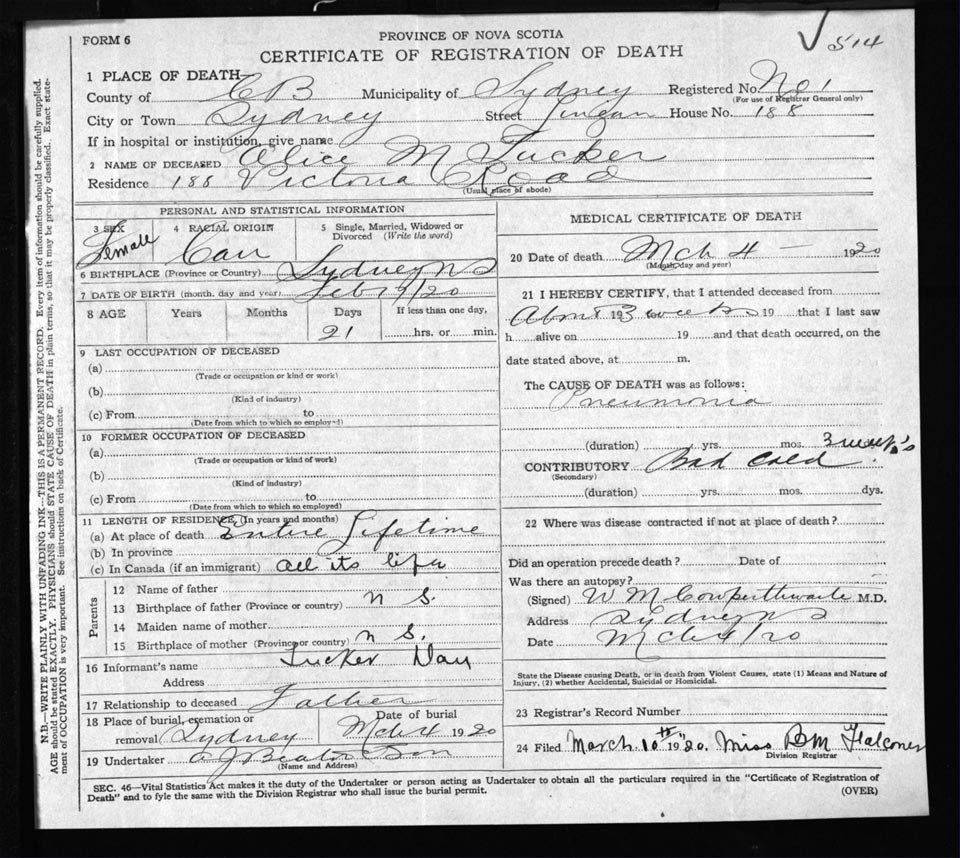 FORM 6
PROVINCE OF NOVA SCOTIA
CERTIFICATE OF REGISTRATION OF DEATH
514
1 PLACE OF DEATH
County of CB Municipality of Sydney Registered No. No 1
(For use of Registrar General only)
City or Town Sydney Street House No. 188
If in hospital or institution, give name
2 NAME OF DECEASED Alice M Tucker
Residence 188 Victoria Road
(Usual place of abode)
PERSONAL AND STATISTICAL INFORMATION
3 SEX Female
4 RACIAL ORIGIN Can
5 Single, Married, Widowed or Divorced (Write the word)
6 BIRTHPLACE (Province or Country) Sydney NS
7 DATE OF BIRTH (month, day and year) Feb /20
8 AGE Years Months Days If less than one day,
21 hrs. or min.
9 LAST OCCUPATION OF DECEASED
(a)
(Trade or occupation or kind or work)
(b)
(Kind of industry)
(c) From to
(Date from which to which so employed)
10 FORMER OCCUPATION OF DECEASED
(a)
(Trade or occupation or kind of work)
(b)
(Kind of industry)
(c) From to
(Date from which to which so employed)
11 LENGTH OF RESIDENCE, (In years and months)
(a) At place of death Entire Lifetime
(b) In province
(c) In Canada (if an immigrant) all its life
Parents
12 Name of father
13 Birthplace of father (Province or country) N S.
14 Maiden name of mother
15 Birthplace of mother (Province or country) N S.
16 Informant's name Tucker Dan
Address
17 Relationship to deceased Father
18 Place of burial, cremation or removal Sydney Date of burial Mch 4 1920
19 Undertaker A J Beaton & Son
(Name and Address)
MEDICAL CERTIFICATE OF DEATH
20 Date of death Mch 4 — 1920
(Month, day and year)
21 I HEREBY CERTIFY, that I attended deceased from
About 19 3 weeks 19 that I last saw
h alive on 19 and that death occurred, on the
date stated above, at m.
The CAUSE OF DEATH was as follows:
Pneumonia
(duration) yrs. mos. 3 week's
CONTRIBUTORY Bad cold
(Secondary)
(duration) yrs. mos. dys.
22 Where was disease contracted if not at place of death?
Did an operation precede death? Date of
Was there an autopsy?
(Signed) W M Cowperthwaite M.D.
Address Sydney N S
Date Mch 4/20
State the Disease causing Death, or in death from Violent Causes, state (1) Means and Nature of
Injury, (2) whether Accidental, Suicidal or Homicidal.
23 Registrar's Record Number
24 Filed March 10th 1920. Miss B M Falconer
Division Registrar
SEC. 46—Vital Statistics Act makes it the duty of the Undertaker or person acting as Undertaker to obtain all the particulars required in the "Certificate of Registration of
Death" and to fyle the same with the Division Registrar who shall issue the burial permit. (OVER)
N.B.—WRITE PLAINLY WITH UNFADING INK—THIS IS A PERMANENT RECORD. Every item of information should be carefully supplied.
AGE should be stated EXACTLY. PHYSICIANS should STATE CAUSE OF DEATH in plain terms, so that it may be properly classified. Exact statement of OCCUPATION is very important. See instructions on back of Certificate.